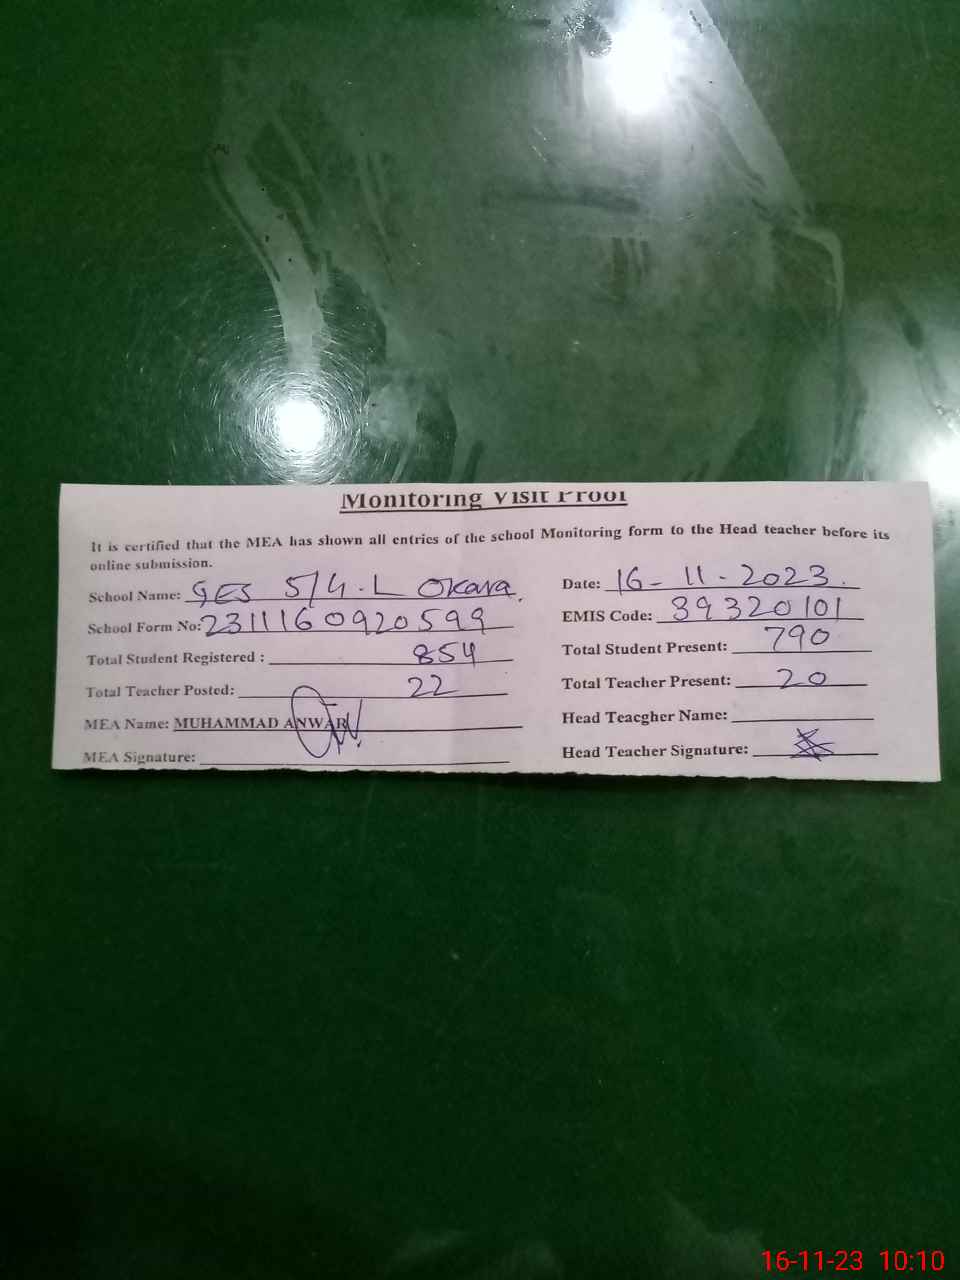 Monitoring Visit Proof
It is certified that the MEA has shown all entries of the school Monitoring form to the Head teacher before its
online submission.
School Name: GES 5/4.L Okara. Date: 16-11-2023.
School Form No: 231116092059​9 EMIS Code: 39320101
Total Student Registered : 854 Total Student Present: 790
Total Teacher Posted: 22 Total Teacher Present: 20
MEA Name: MUHAMMAD ANWAR Head Teacgher Name:
MEA Signature: Head Teacher Signature:
16-11-23 10:10